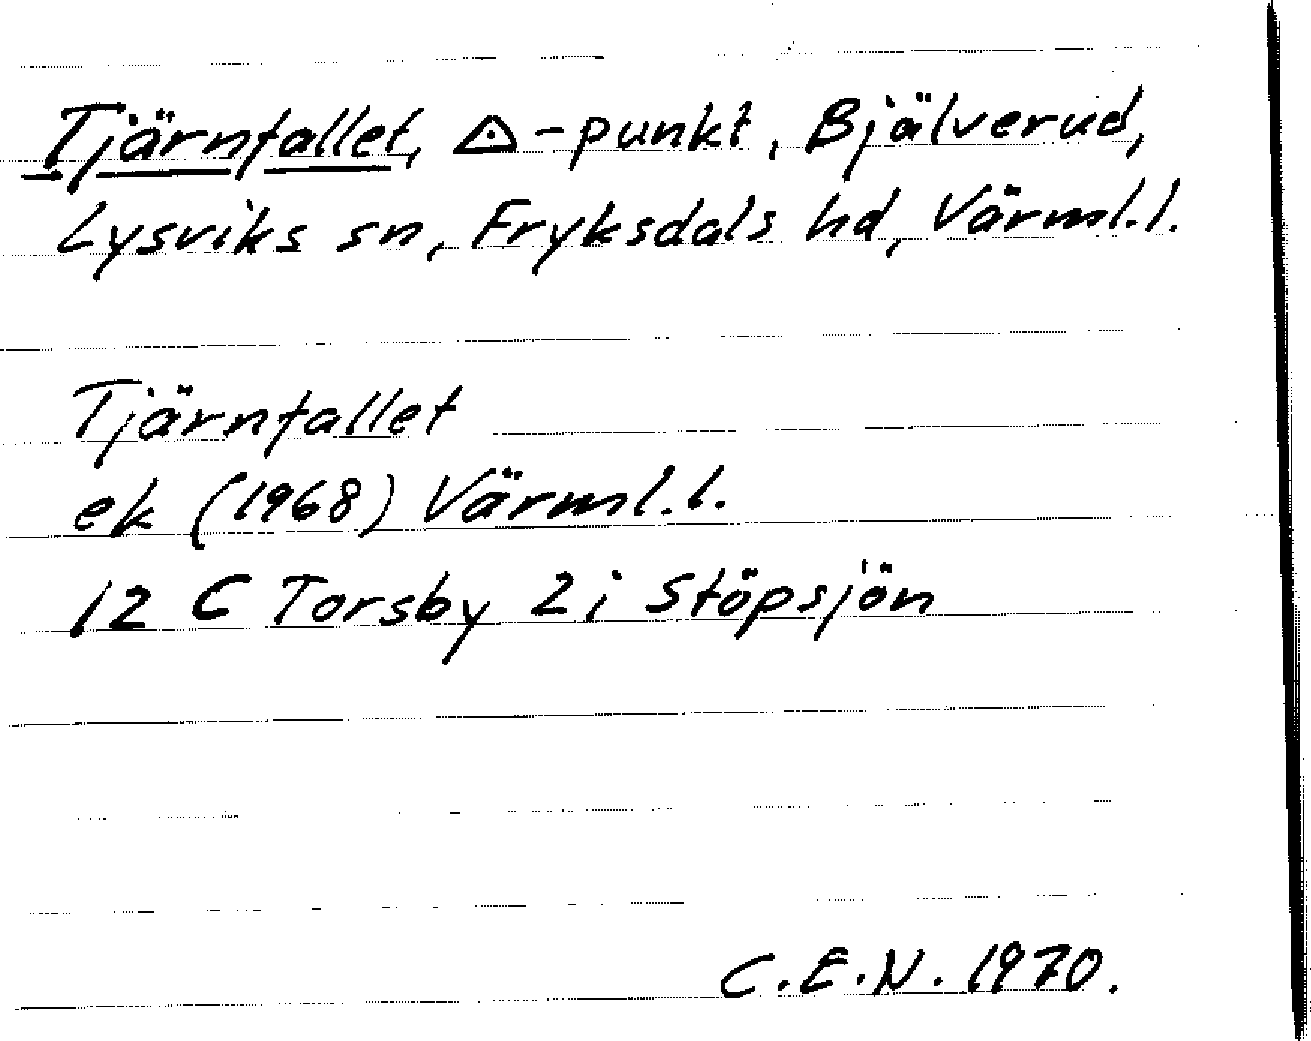 Tjärnfallet, ◬-punkt, Bjälverud,
Lysviks sn, Fryksdals hd, Värml.l.
Tjärnfallet
ek (1968) Värml.l.
12 C Torsby 2i Stöpsjön
C.E.N. 1970.